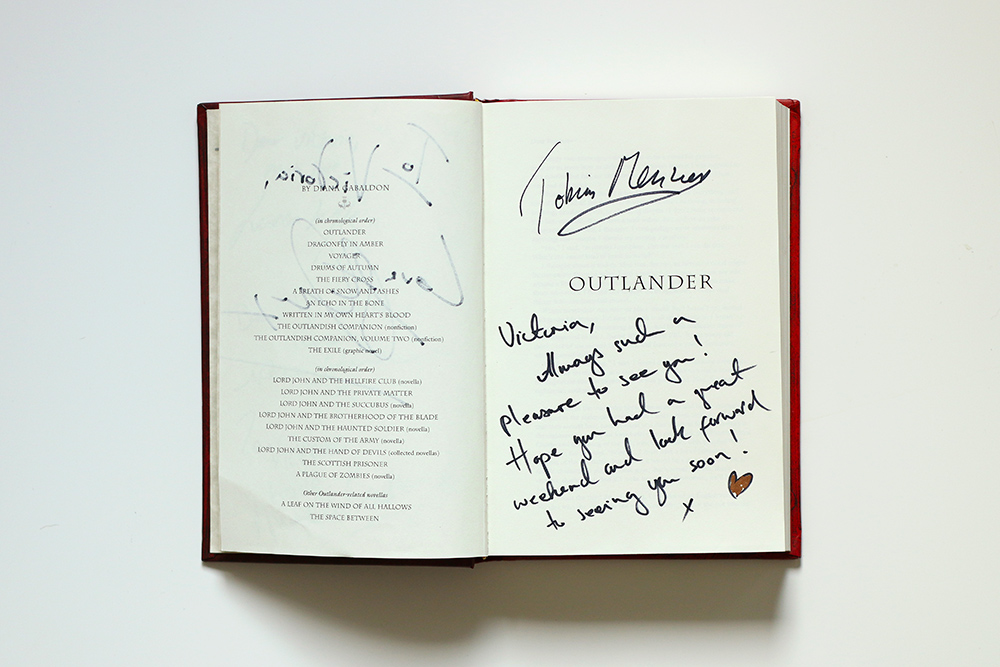 To Victoria,
Love
BY DIANA GABALDON
(in chronological order)
OUTLANDER
DRAGONFLY IN AMBER
VOYAGER
DRUMS OF AUTUMN
THE FIERY CROSS
A BREATH OF SNOW AND ASHES
AN ECHO IN THE BONE
WRITTEN IN MY OWN HEART'S BLOOD
THE OUTLANDISH COMPANION (nonfiction)
THE OUTLANDISH COMPANION, VOLUME TWO (nonfiction)
THE EXILE (graphic novel)
(in chronological order)
LORD JOHN AND THE HELLFIRE CLUB (novella)
LORD JOHN AND THE PRIVATE MATTER
LORD JOHN AND THE SUCCUBUS (novella)
LORD JOHN AND THE BROTHERHOOD OF THE BLADE
LORD JOHN AND THE HAUNTED SOLDIER (novella)
THE CUSTOM OF THE ARMY (novella)
LORD JOHN AND THE HAND OF DEVILS (collected novellas)
THE SCOTTISH PRISONER
A PLAGUE OF ZOMBIES (novella)
Other Outlander-related novellas
A LEAF ON THE WIND OF ALL HALLOWS
THE SPACE BETWEEN
Tobias Menzies
OUTLANDER
Victoria,
Always such a
pleasure to see you!
Hope you had a great
weekend and look forward
to seeing you soon!
x